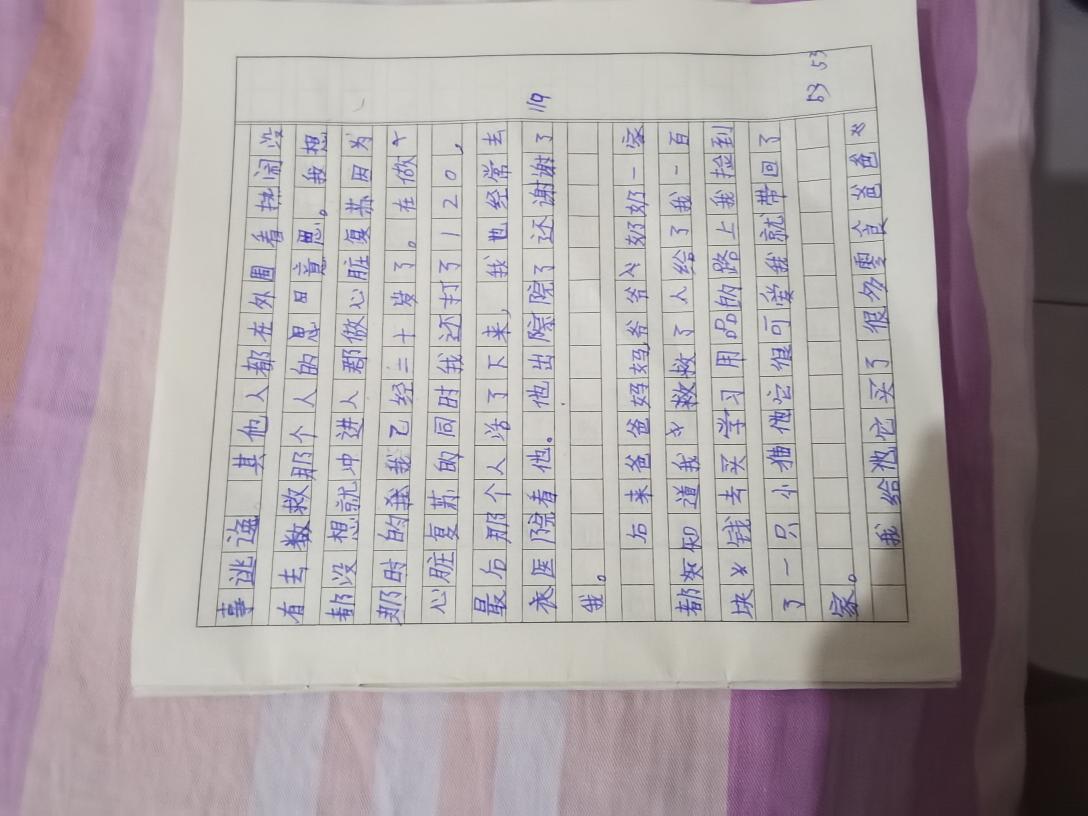 事逃逸 其他人都在外围看热闹没
有去救那个人的意思。我想
都没想就冲进人群做心脏复苏因为
那时的我已经二十岁了。在做
心脏复苏的同时我还打了120，
最后那个人活了下来，我也经常去
医院看他。他出院了还谢谢了
我。
119
后来爸爸妈妈爷爷奶奶一家
都知道我救了人给了我一百
块钱去买学习用品的路上我捡到
了一只小猫它很可爱我就带回了
家。
53 53
我给它买了很多零食爸爸